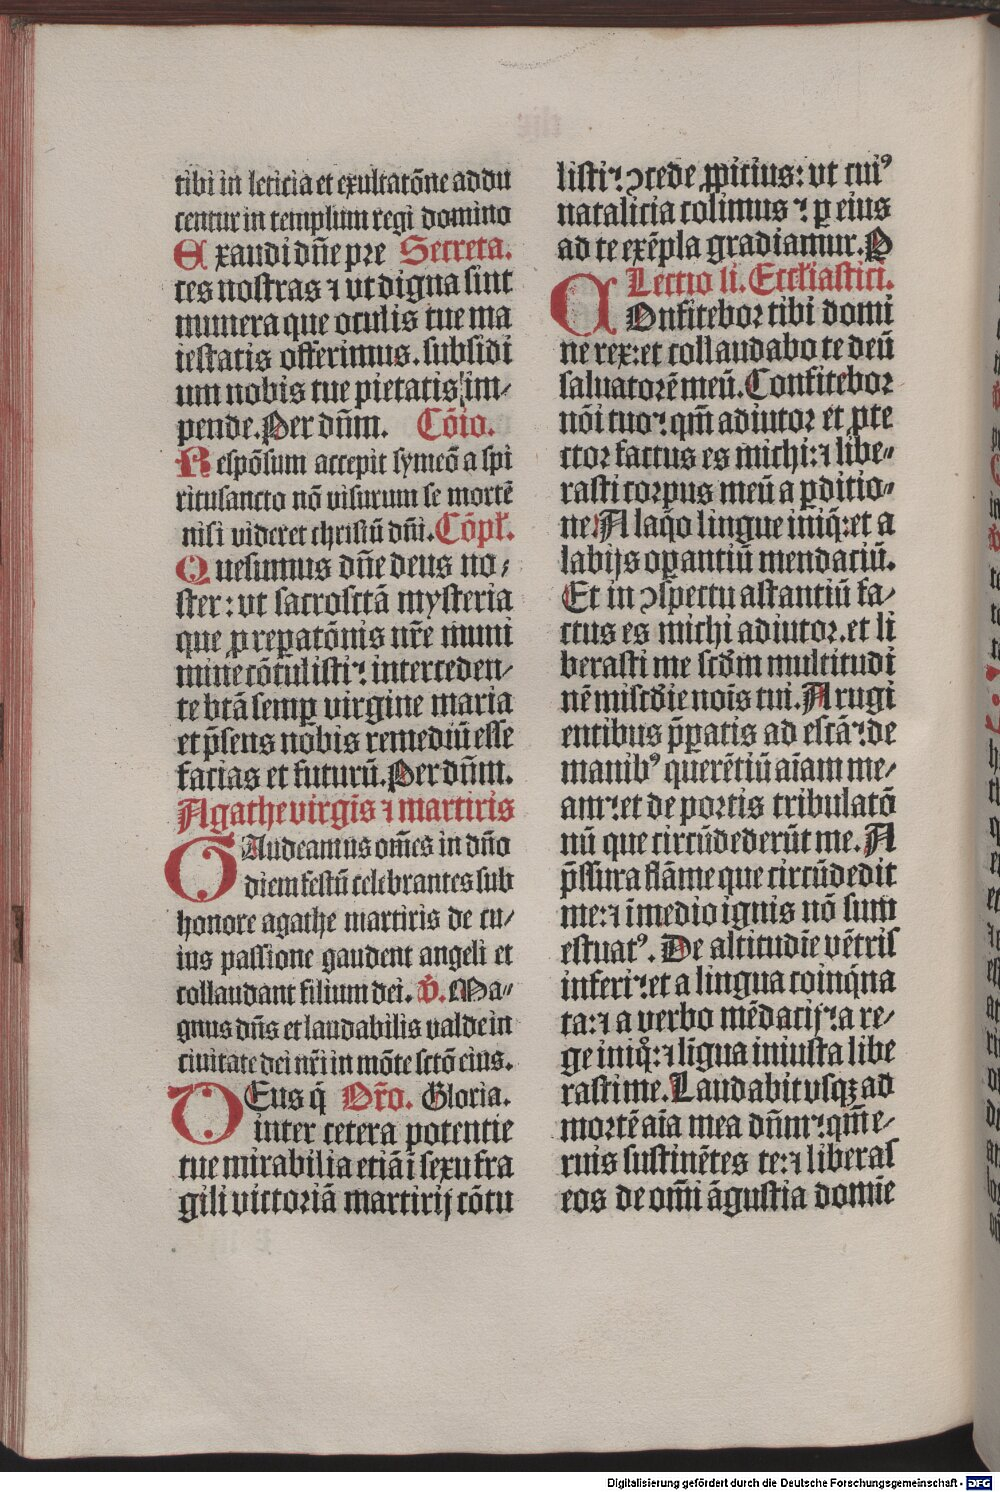 tibi in leticia et exultatōne addu
centur in templum regi domino
Exaudi dn̄e pre Secreta.
ces nostras ⁊ vt digna sint
munera que oculis tue ma
iestatis offerimus. subsidi
um nobis tue pietatis im⸗
pende. Per dn̄m. Cōio.
Respōsum accepit symeō a spi
ritusancto nō visurum se mortē
nisi videret christū dn̄i. Cōpl̄.
Quesumus dn̄e deus no⸗
ster: vt sacrosctā mysteria
que ꝓ reꝑatōnis nr̄e muni
mine cōtulisti⁊ interceden⸗
te btā semꝑ virgine maria
et p̄sens nobis remediū esse
facias et futurū. Per dn̄m.
Agathe virgīs ⁊ martiris
GAudeamus om̄es in dn̄o
diem festū celebrantes sub
honore agathe martiris de cu⸗
ius passione gaudent angeli et
collaudant filium dei. v̄. Ma⸗
gnus dn̄s et laudabilis valde in
ciuitate dei nr̄i in mōte sctō eius.
DEus q̄ Or̄o. Gloria.
inter cetera potentie
tue mirabilia etiā ī sexu fra
gili victoriā martirij cōtu
listi⁊ ↄcede ꝓpicius: vt cuiꝰ
natalicia colimus⁊ ꝑ eius
ad te exēpla gradiamur. P
Lectio li. Eccl̄iastici.
COnfitebor tibi domi
ne rex: et collaudabo te deū
saluatorē meū. Confitebor
nōi tuo⁊ qm̄ adiutor et ꝓte
ctor factus es michi: ⁊ libe⸗
rasti corpus meū a ꝑditio⸗
ne. A laq̄o lingue iniq̄: et a
labijs oꝑantiū mendaciū.
Et in ↄspectu astantiū fa⸗
ctus es michi adiutor. et li
berasti me scd̄m multitudi
nē misc̄die noīs tui. A rugi
entibus p̄ꝑatis ad escā⁊ de
manibꝰ querētiū aīam me⸗
am⁊ et de portis tribulatō
nū que circūdederūt me. A
p̄ssura flāme que circūdedit
me: ⁊ īmedio ignis nō sum
estuatꝰ. De altitudīe vētris
inferi⁊ et a lingua coinq̄na
ta: ⁊ a verbo mēdacij⁊ a re⸗
ge iniq̊: ⁊ līgua iniusta libe
rasti me. Laudabit vsqꝫ ad
mortē aīa mea dn̄m⁊ qm̄ e⸗
ruis sustinētes te: ⁊ liberas
eos de om̄i āgustia domīe
Digitalisierung gefördert durch die Deutsche Forschungsgemeinschaft - DFG